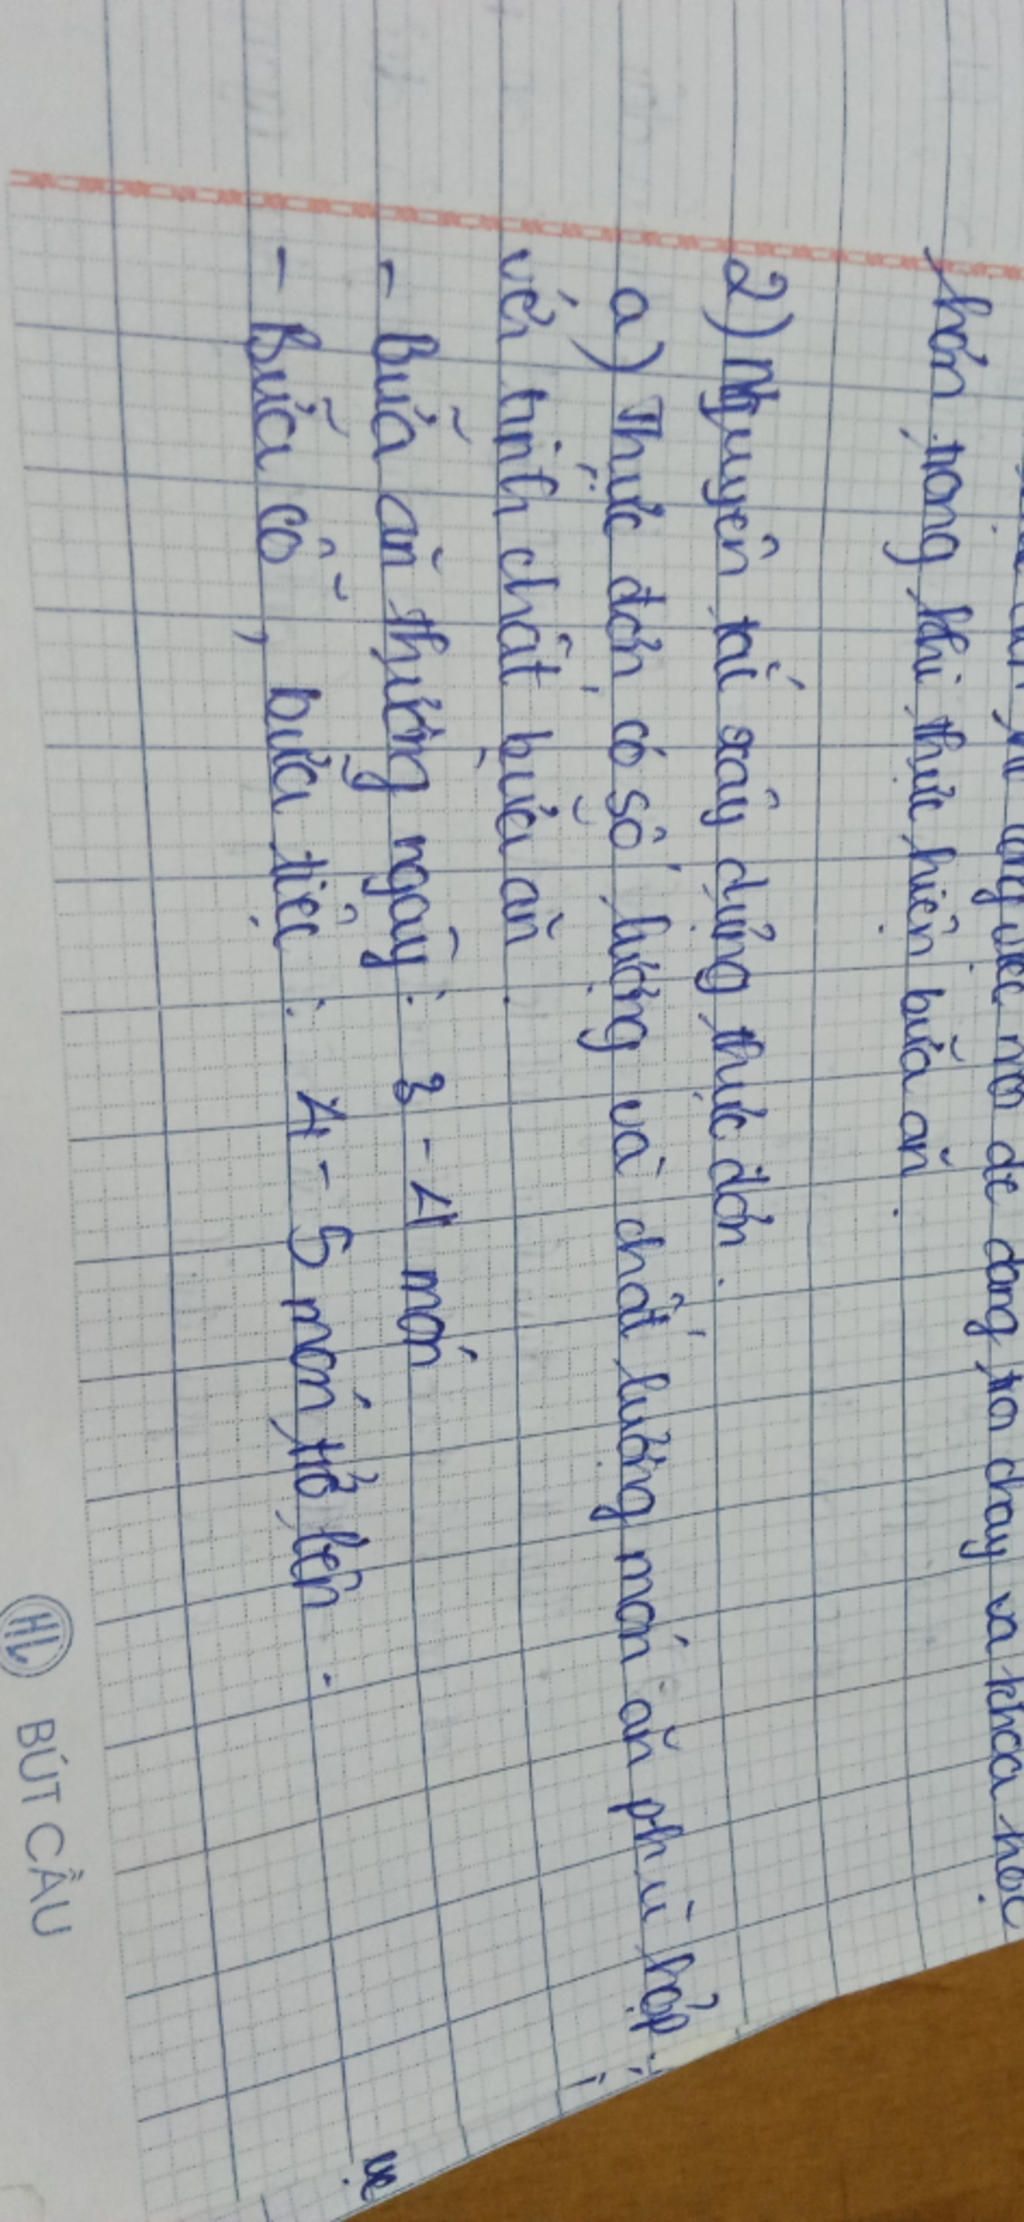 công việc nói dễ dàng, trôi chảy và khoa học
hơn trong khi thực hiện bữa ăn.
2) Nguyên tắc xây dựng thực đơn.
a) Thực đơn có số lượng và chất lượng món ăn phù hợp
với tính chất bữa ăn.
- Bữa ăn thường ngày: 3 - 4 món
- Bữa cỗ, bữa tiệc: 4 - 5 món trở lên.
HL BÚT CẦU